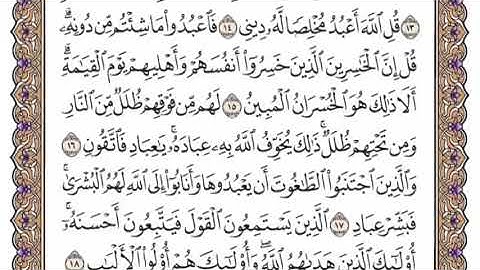 ١٣ قُلِ ٱللَّهَ أَعْبُدُ مُخْلِصًا لَّهُۥ دِينِى ١٤ فَٱعْبُدُوا۟ مَا شِئْتُم مِّن دُونِهِۦۗ
قُلْ إِنَّ ٱلْخَٰسِرِينَ ٱلَّذِينَ خَسِرُوٓا۟ أَنفُسَهُمْ وَأَهْلِيهِمْ يَوْمَ ٱلْقِيَٰمَةِۗ
أَلَا ذَٰلِكَ هُوَ ٱلْخُسْرَانُ ٱلْمُبِينُ ١٥ لَهُم مِّن فَوْقِهِمْ ظُلَلٌ مِّنَ ٱلنَّارِ
وَمِن تَحْتِهِمْ ظُلَلٌۚ ذَٰلِكَ يُخَوِّفُ ٱللَّهُ بِهِۦ عِبَادَهُۥۚ يَٰعِبَادِ فَٱتَّقُونِ ١٦
وَٱلَّذِينَ ٱجْتَنَبُوا۟ ٱلطَّٰغُوتَ أَن يَعْبُدُوهَا وَأَنَابُوٓا۟ إِلَى ٱللَّهِ لَهُمُ ٱلْبُشْرَىٰۚ
فَبَشِّرْ عِبَادِ ١٧ ٱلَّذِينَ يَسْتَمِعُونَ ٱلْقَوْلَ فَيَتَّبِعُونَ أَحْسَنَهُۥٓۚ
أُو۟لَٰٓئِكَ ٱلَّذِينَ هَدَىٰهُمُ ٱللَّهُۖ وَأُو۟لَٰٓئِكَ هُمْ أُو۟لُوا۟ ٱلْأَلْبَٰبِ ١٨